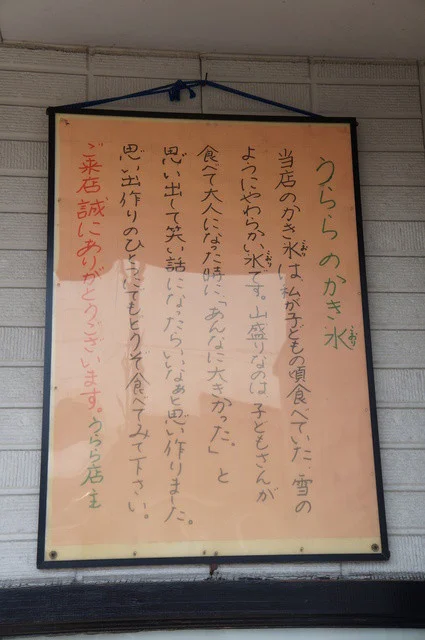 うららのかき氷
当店のかき氷は、私が子どもの頃食べていた、雪の
ようにやわらかい氷です。山盛りなのは子どもさんが
食べて大人になった時に「あんなに大きかった。」と
思い出して笑い話になったらいいなぁと思い作りました。
思い出作りのひとつにでもどうぞ食べてみて下さい。
ご来店誠にありがとうございます。うらら店主